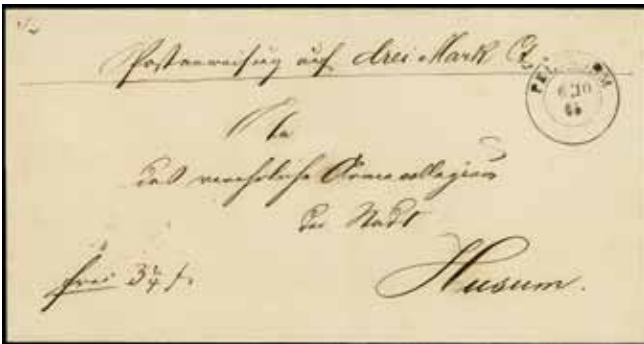 Postanweisung auf drei Mark Ct
PELLWORM
6 10
65
An
das verehrliche Armencollegium
der Stadt
Husum.
frei 3¼ ß